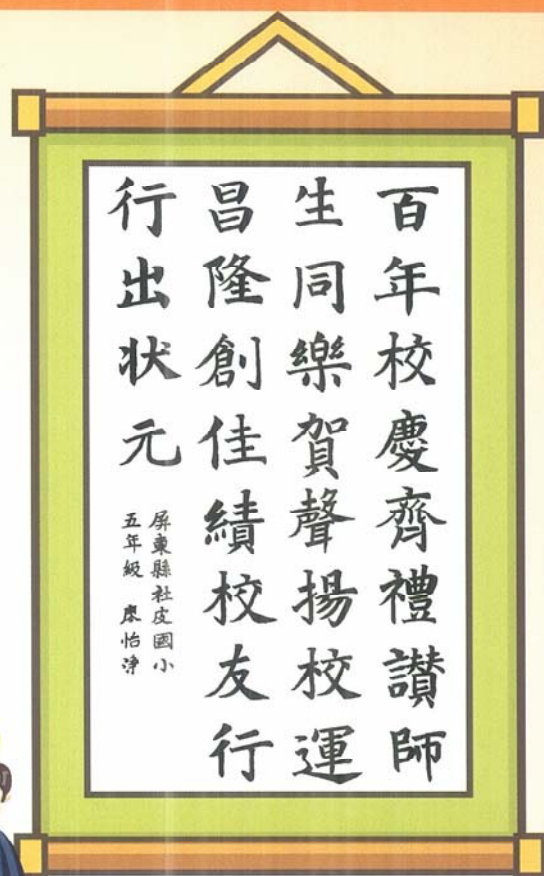 百年校慶齊禮讚師
生同樂賀聲揚校運
昌隆創佳績校友行
行出狀元
屏東縣社皮國小
五年級 廖怡淨